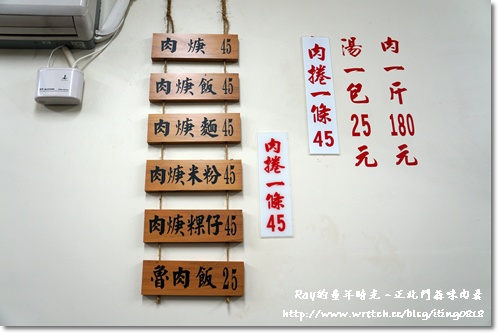 肉焿 45
肉焿飯 45
肉焿麵 45
肉焿米粉 45
肉焿粿仔 45
魯肉飯 25
肉捲一條45
肉捲一條45
湯一包25元
肉一斤180元
Ray的童年時光-正北門蒜味肉羹
http://www.wretch.cc/blog/iting0818